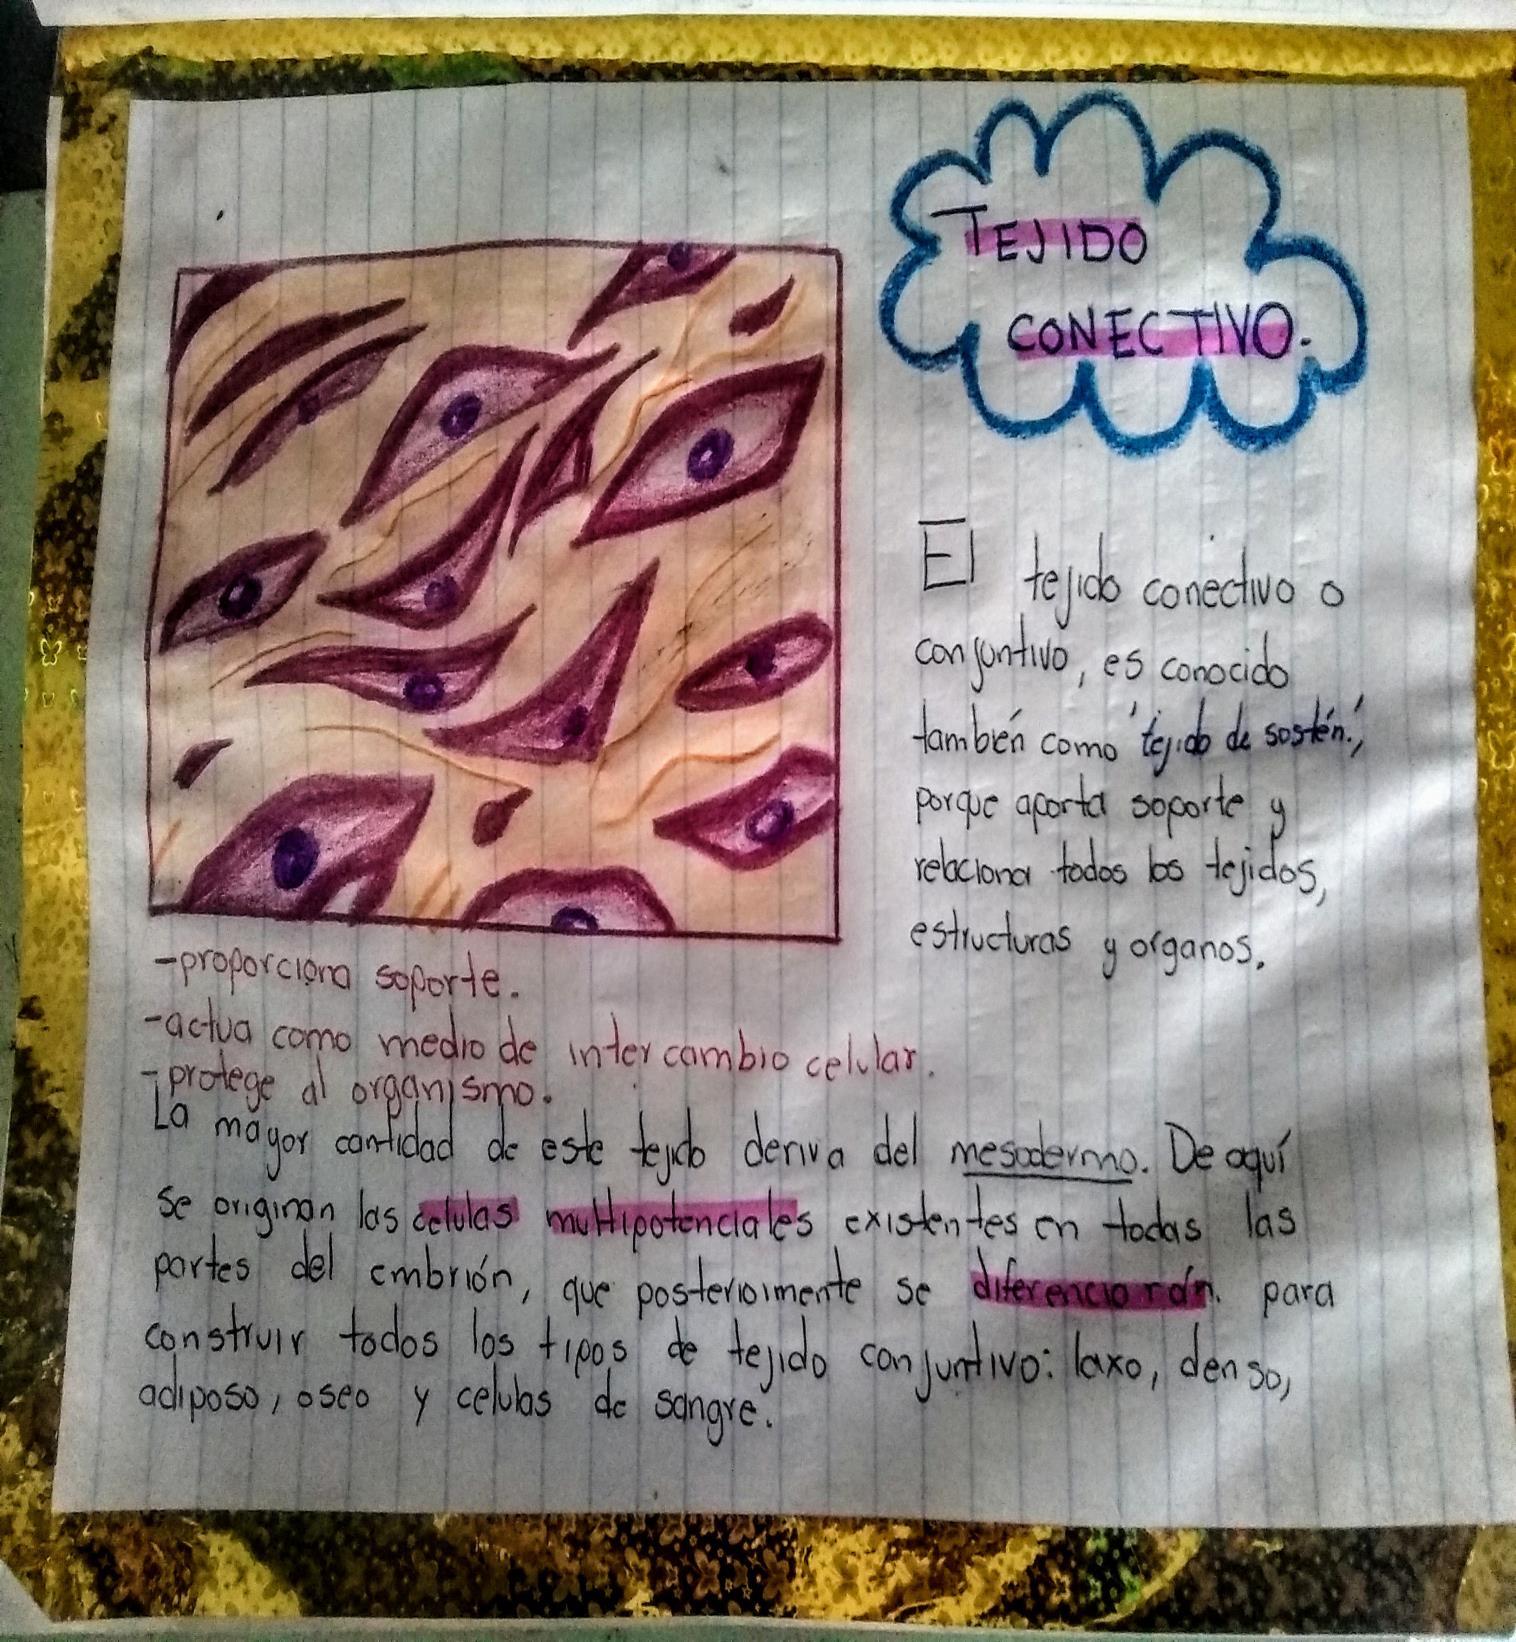 TEJIDO
CONECTIVO.
El tejido conectivo o
conjuntivo, es conocido
también como 'tejido de sostén.',
porque aporta soporte y
relaciona todos los tejidos,
estructuras y organos.
-proporciona soporte.
-actua como medio de intercambio celular.
-protege al organismo.
La mayor cantidad de este tejido deriva del mesodermo. De aquí
se originan las celulas multipotenciales existentes en todas las
partes del embrión, que posteriormente se diferenciarán. para
construir todos los tipos de tejido conjuntivo: laxo, denso,
adiposo, oseo y celulas de sangre.